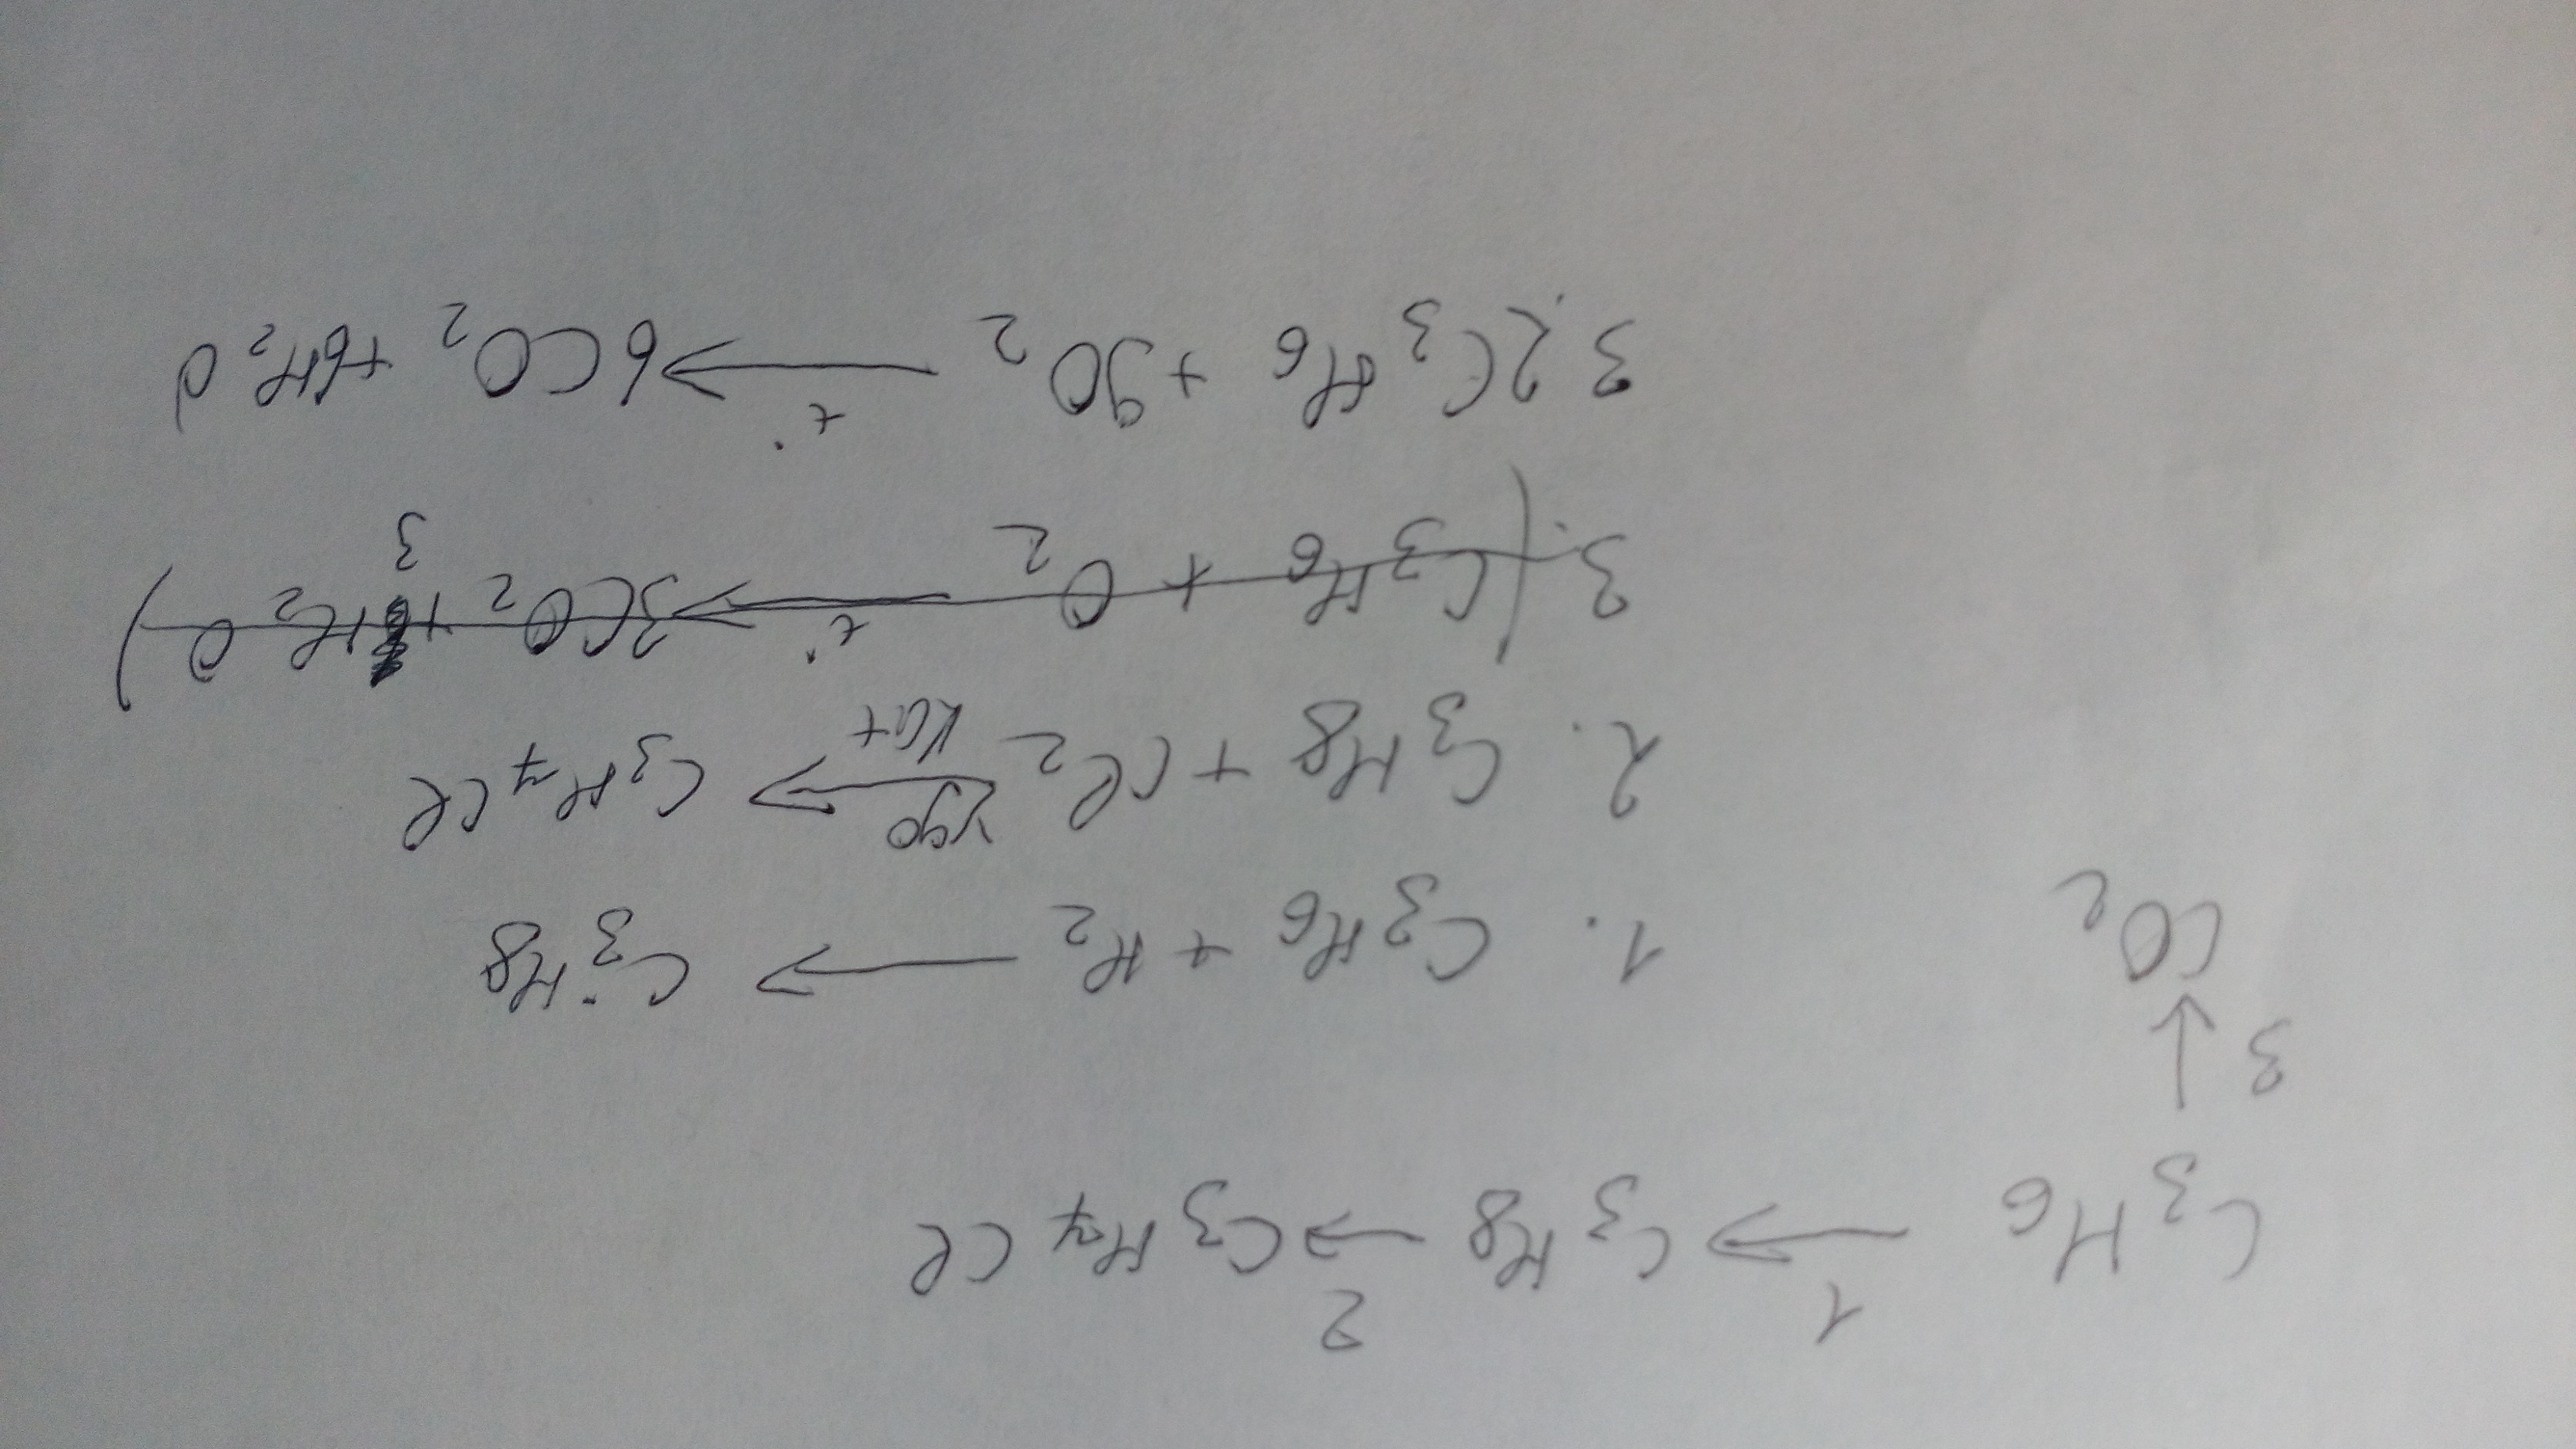 1 2
C3H6 → C3H8 → C3H7Cl
↓ 3
CO2
1. C3H6 + H2 → C3H8
2. C3H8 + Cl2 → C3H7Cl
кат
3. (C3H6 + O2 → t° 3CO2 + 3H2O)
3. 2C3H6 + 9O2 → t° 6CO2 + 6H2O